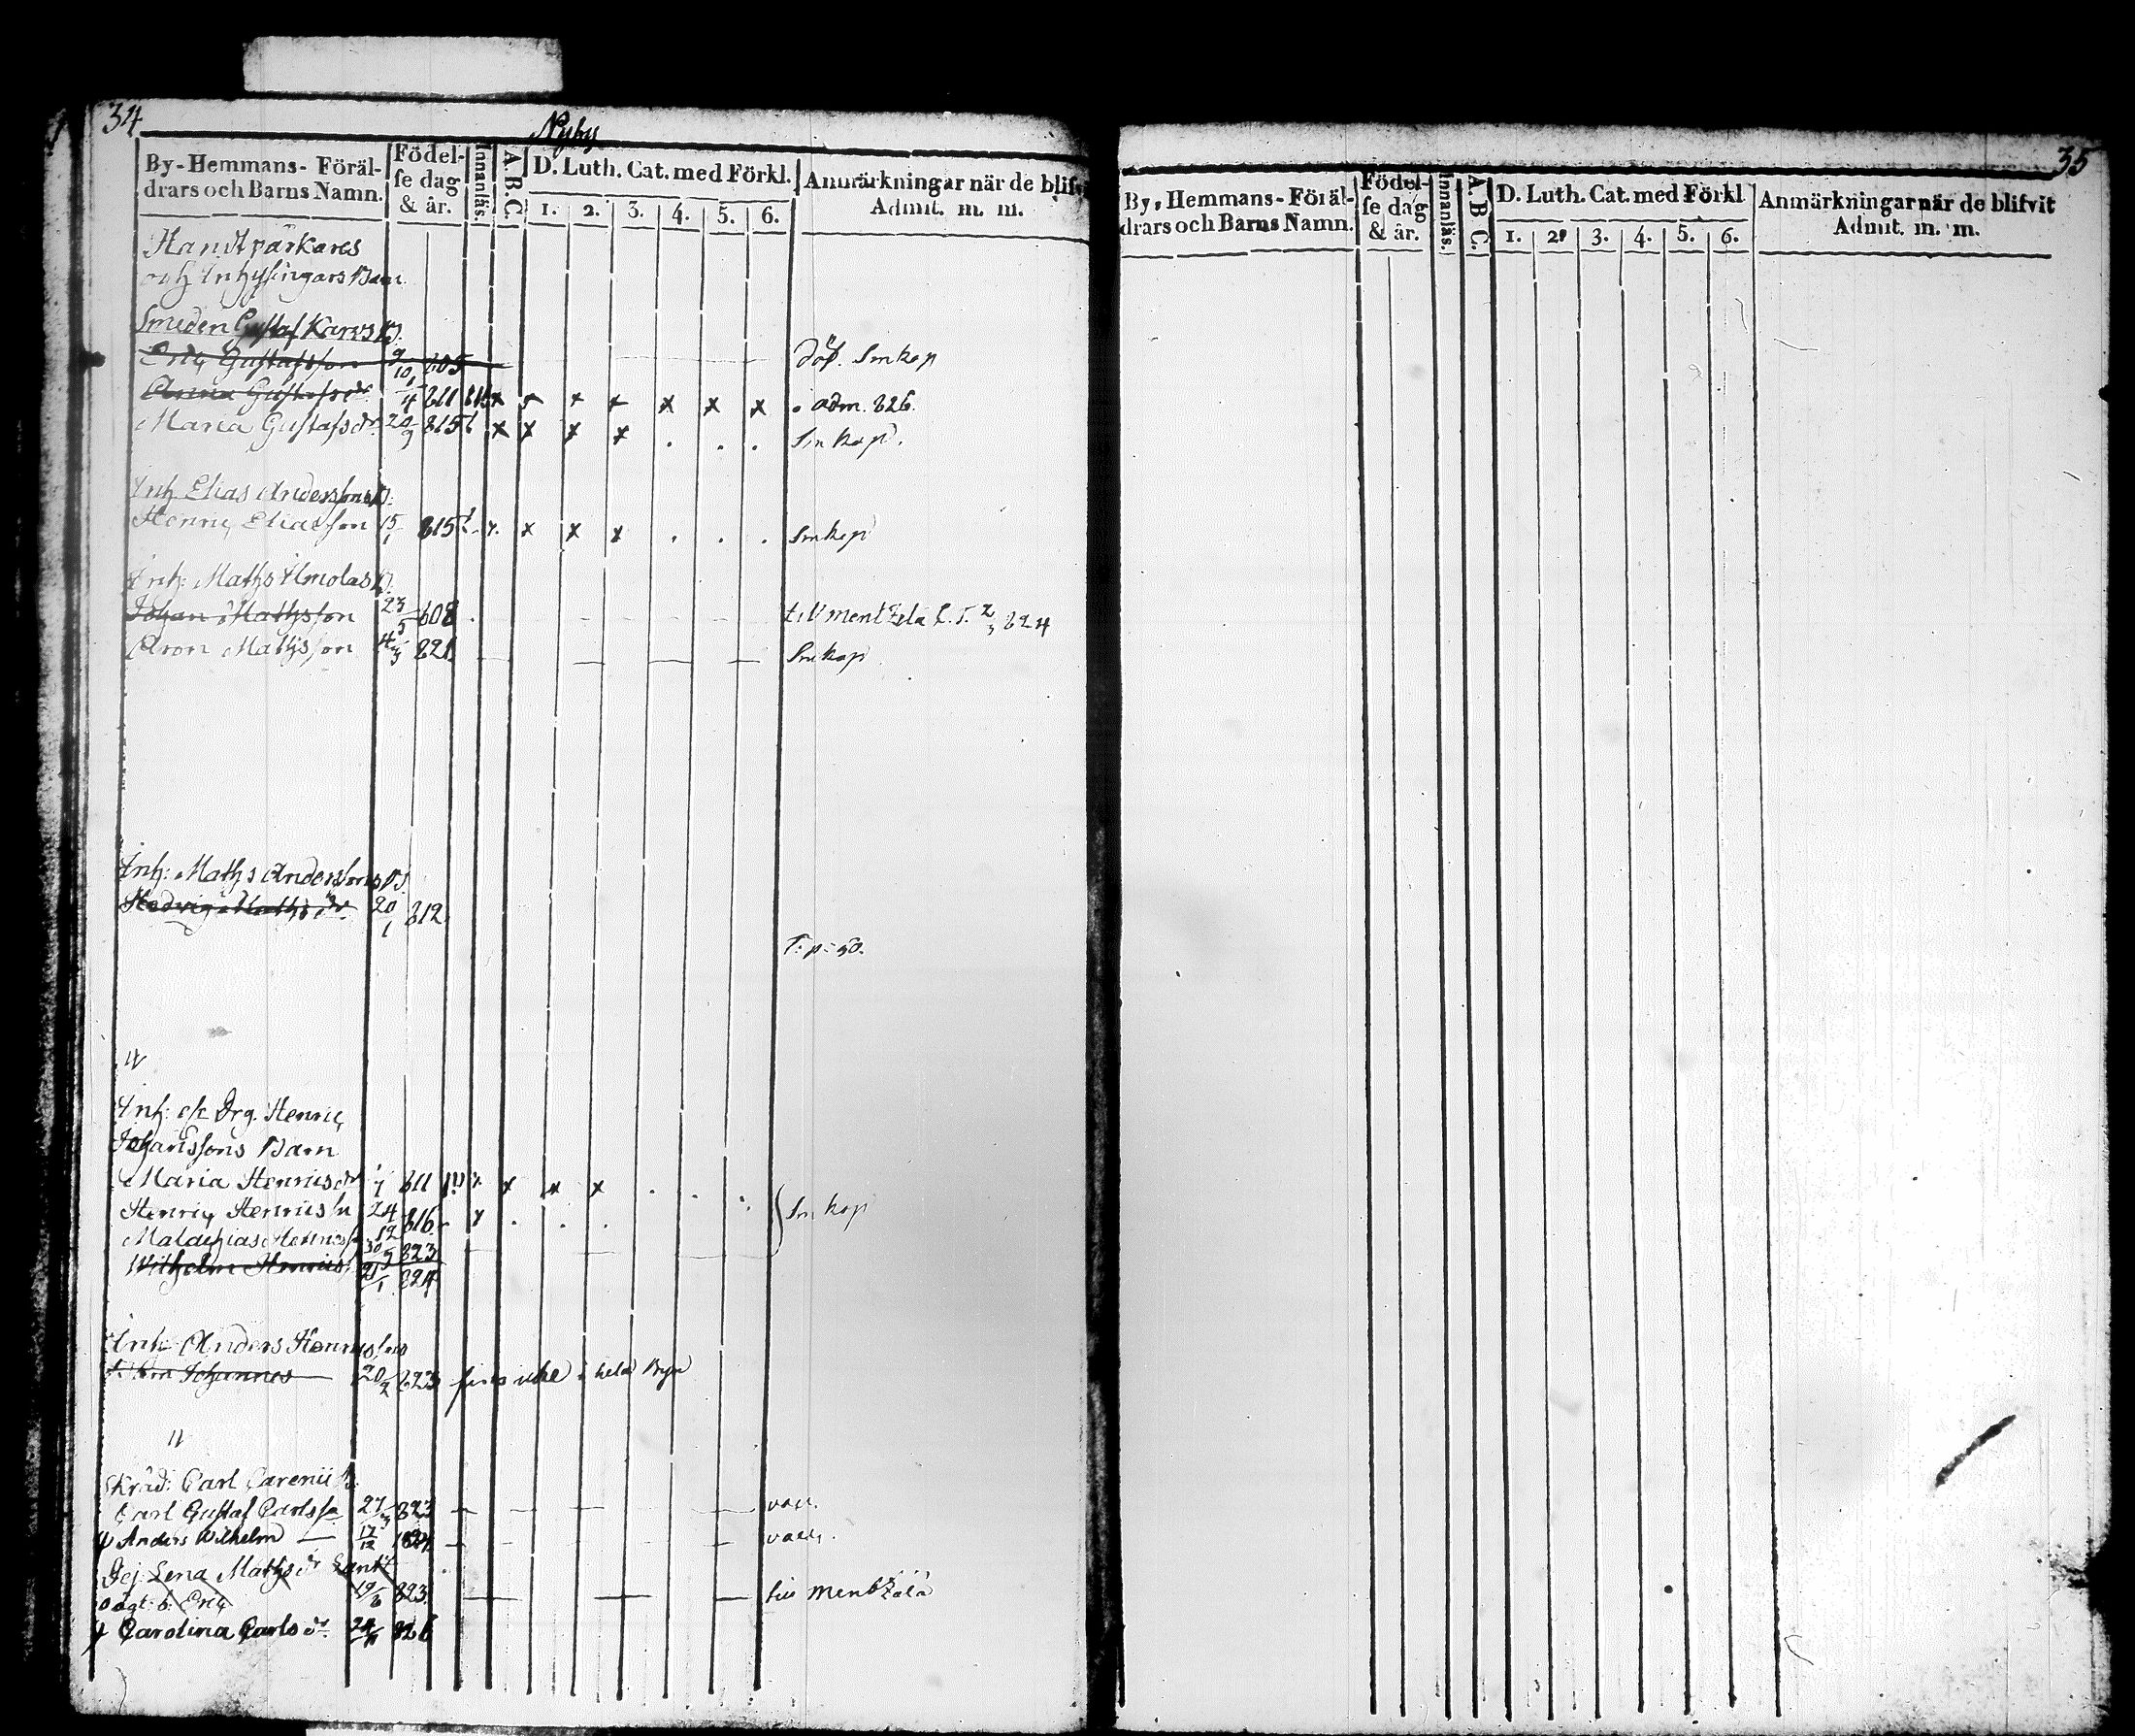 34
Nyby
By-Hemmans- Föräl-
drars och Barns Namn.
Födel-
se dag
& år.
Innanläs.
A. B. C.
D. Luth. Cat. med Förkl.
1. 2. 3. 4. 5. 6.
Anmärkningar när de blifvit
Admit. m. m.
Handtvärkares
och Inhysingars Barn
Smeden Gustaf Karvs B.
Eric Gustafsson 9/10 805 Smkop
Anna Gustafsdr 1/4 811 x x x x x x adm. 826.
Maria Gustafsdr 815 x x x x . . . Smkop.
Inh. Elias Anderssons B:
Henric Eliasson 15/1 815 x x x x . . . Smkop
Inh: Maths B.
Johan Mathsson 23/5 808 till Mentzela 824
Aron Mathsson 821 Smkop
Inh: Maths Anderssons B.
Hedvig Mathsdr 20/1 812
T. p. 50.
Inh: Drg. Henric
Johanssons Barn
Maria Henricsdr 811 x x x . . .
Henric Henricss 24/12 816 x . . . Smkop
Malachias 30/9 823
Wilhelm Henricss 21/1 824
Inh: Anders Henricssons
Johannes 20/2 823 finns icke i hela Byn
Skräd: Carl Carenii B.
Carl Gustaf Carlsso 27/3 823 vacc.
Anders Wilhelm 17/12 1824 vacc.
Pej Lena Mathsdr
oägt: b: Eric 19/6 823 till Mentzälä
Carolina Carlsdr 24/11 826
35
By-Hemmans- Föräl-
drars och Barns Namn.
Födel-
se dag
& år.
Innanläs.
A. B. C.
D. Luth. Cat. med Förkl
1. 2. 3. 4. 5. 6.
Anmärkningar när de blifvit
Admit. m. m.